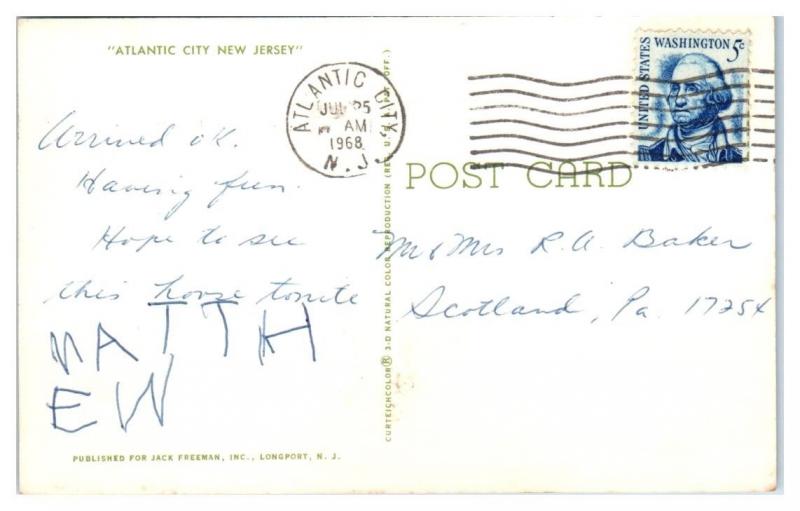 "ATLANTIC CITY NEW JERSEY"
Arrived ok.
Having fun.
Hope to see
this horse tonite
MATTH
EW
PUBLISHED FOR JACK FREEMAN, INC., LONGPORT, N. J.
CURTEICHCOLOR® 3-D NATURAL COLOR REPRODUCTION (REG. U.S.A. PAT. OFF.)
ATLANTIC CITY
JUL 25
AM
1968
N.J.
UNITED STATES
WASHINGTON 5c
POST CARD
Mr & Mrs R. A. Baker
Scotland, Pa. 17254